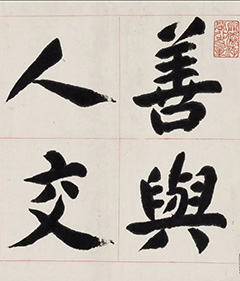 善與
人交